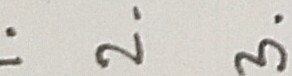 1.
2.
3.